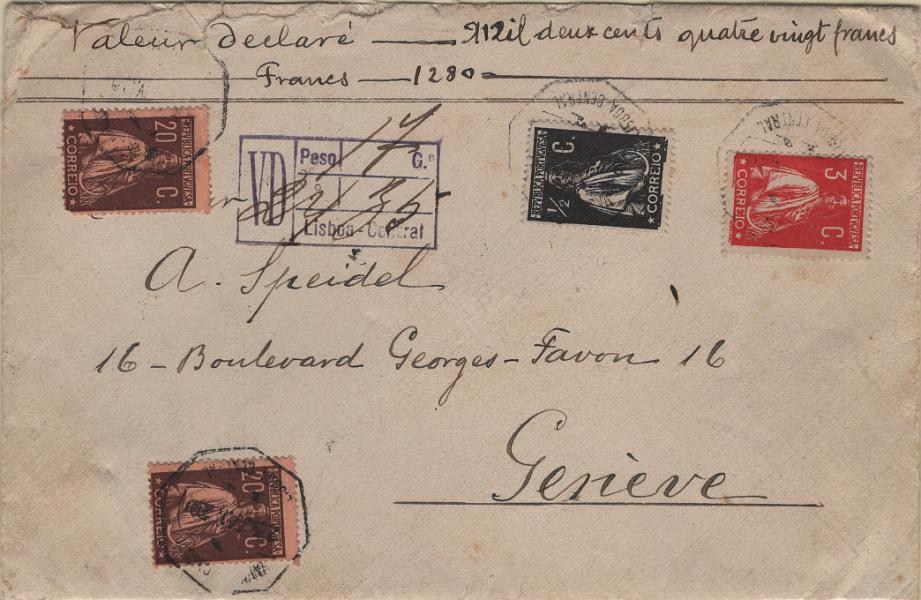 Valeur declaré — Mil deux cents quatre vingt francs
Francs — 1280 —
20 C.
REPUBLICA PORTUGUESA
CORREIO
VD
Peso 17 G.s
Lisboa - Central
½ C.
REPUBLICA PORTUGUESA
CORREIO
LISBOA CENTRAL
3 C.
REPUBLICA PORTUGUESA
CORREIO
CENTRAL
A. Speidel
16 - Boulevard Georges - Favon 16
Genève
20 C.
REPUBLICA PORTUGUESA
CORREIO